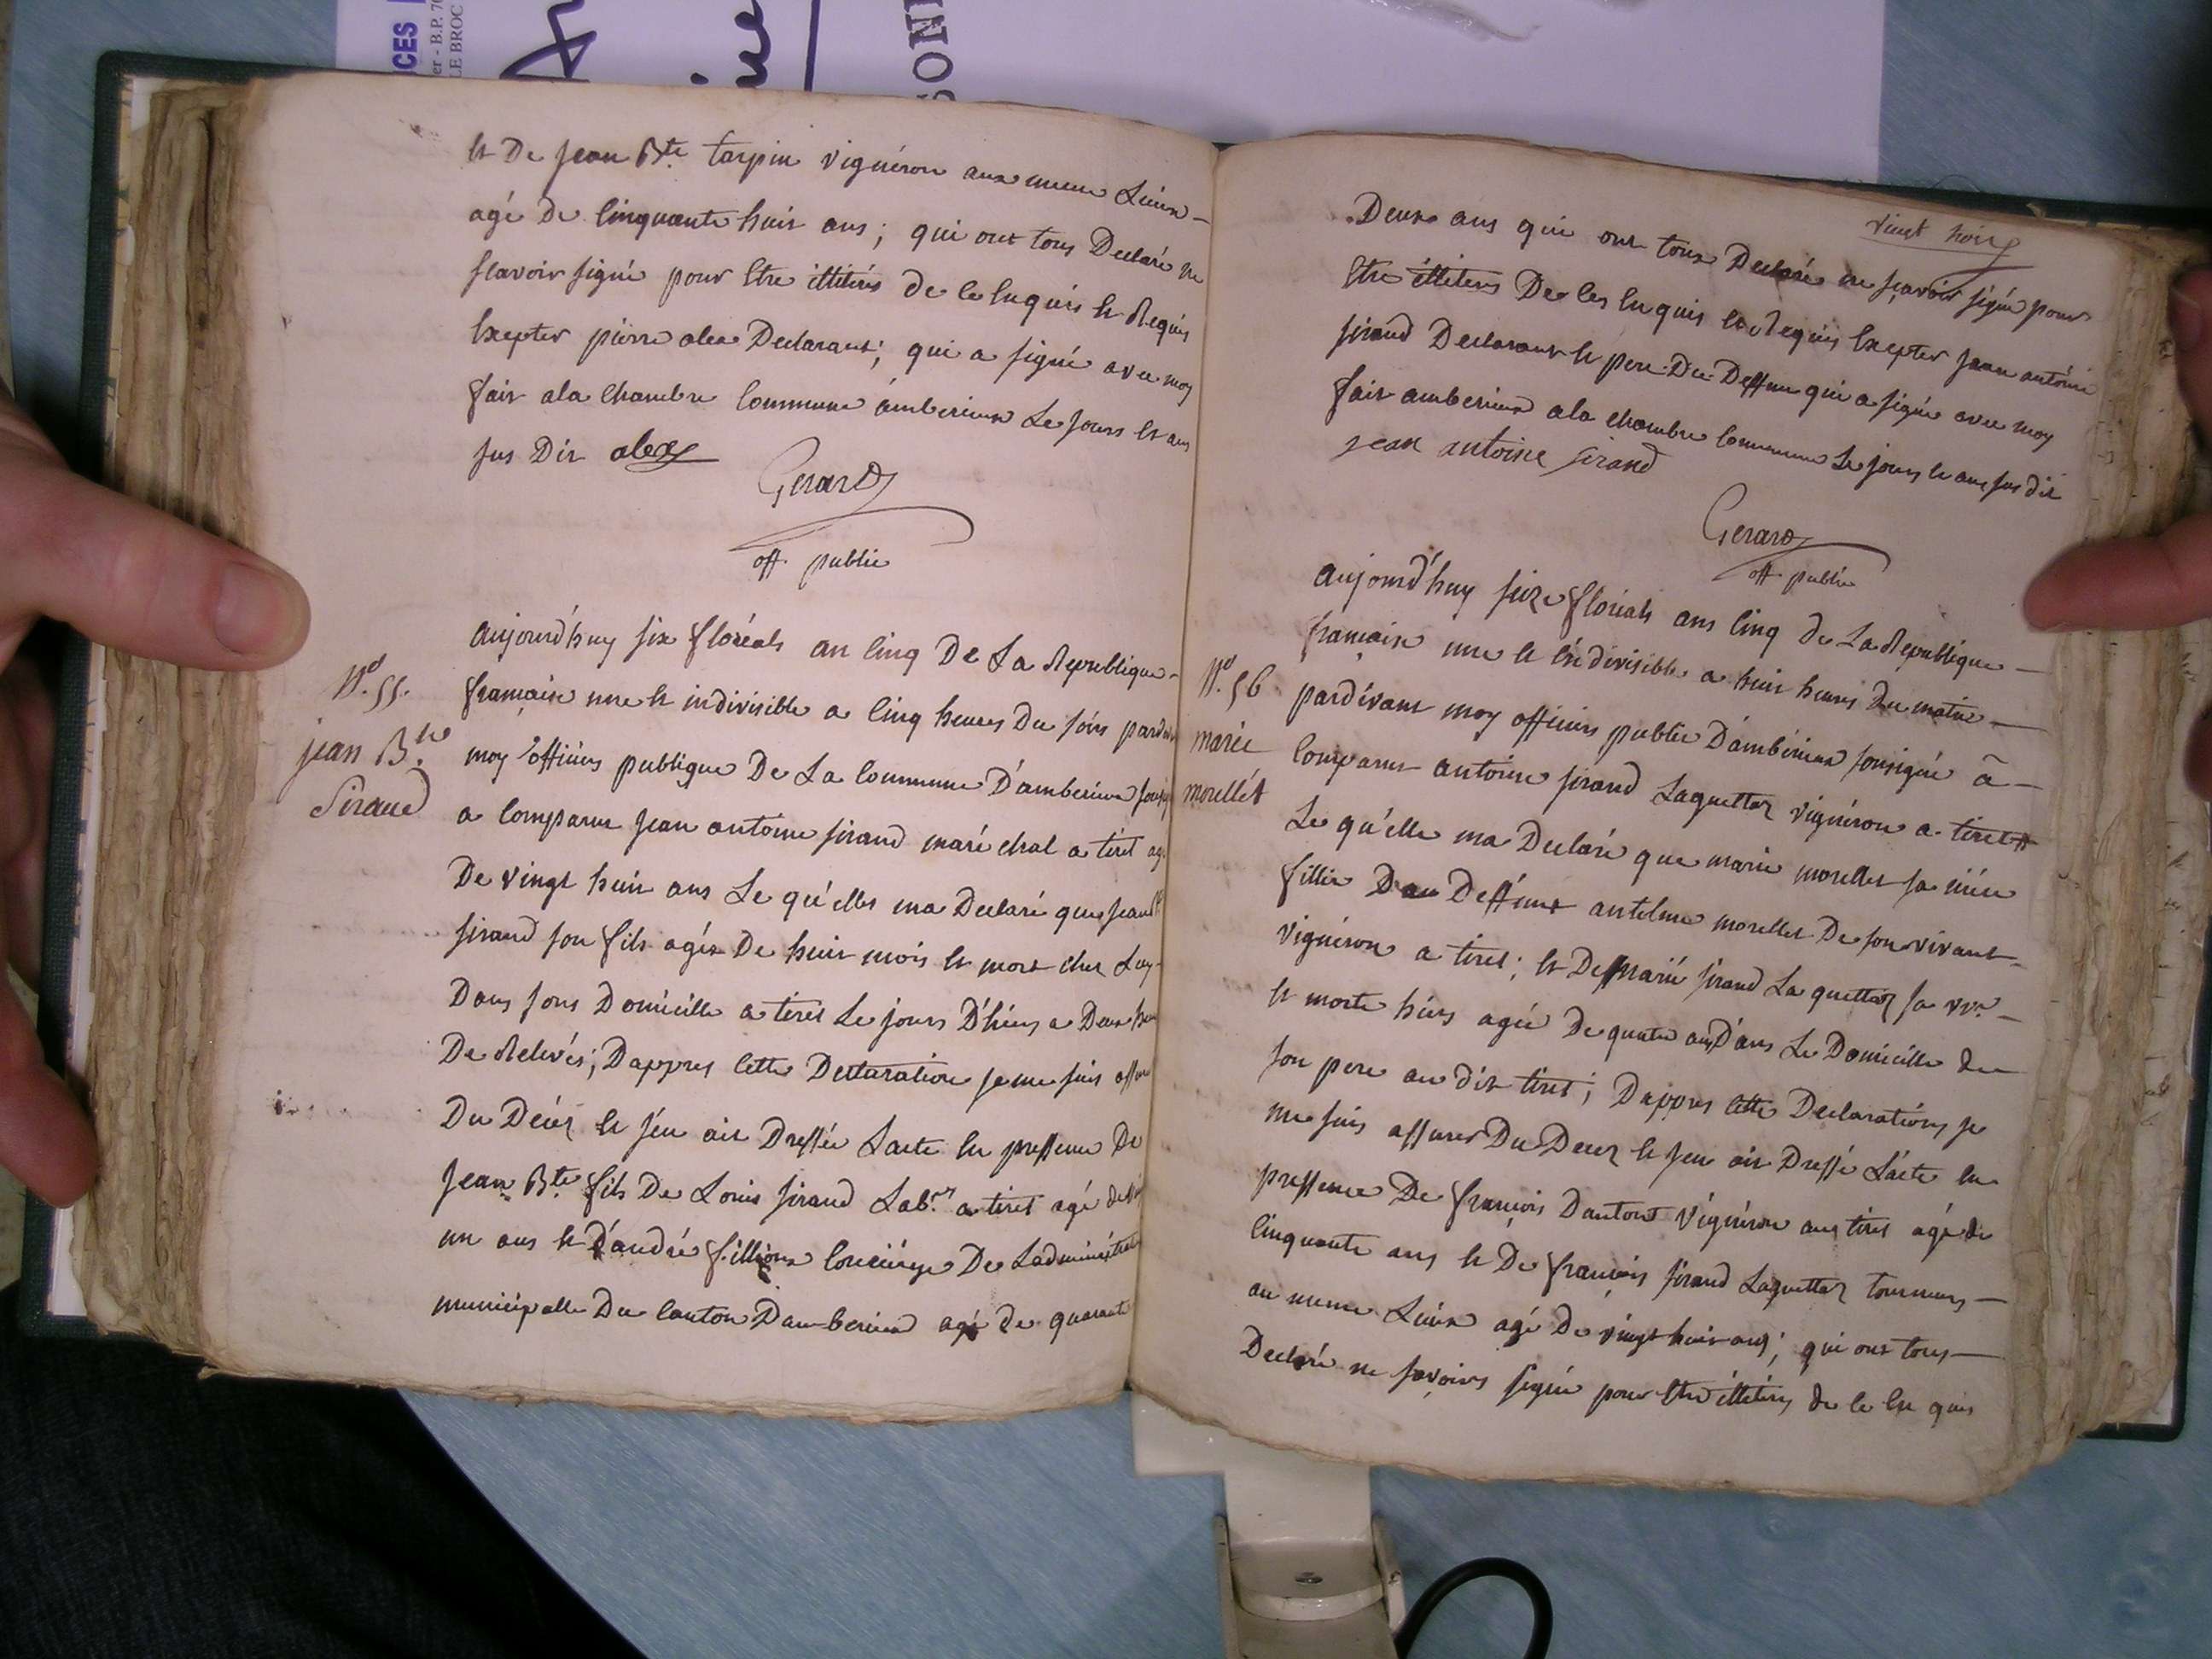 CES
er - B.P. 70
LE BROC
SONN
et De jean Bte tarpin vignéron aux meme Lieux –
agé de Cinquante huit ans ; qui ont tous Declaré ne
scavoir signé pour Etre illitérés de ce Enquis et Requis
Excepter pierre alex Declarant ; qui a signé avec moy
fait a la Chambre Commune ámberieux Le jours et ans
sus Dit alex
Gerard
off. public
Nº. 55.
jean Bte
Siraud
aujourd'huy six floréals an Cinq De La Republique –
francaise une et indivisible a Cinq heures Du soirs pardvt
moy officiers publique De La Commune D'amberieux
a Comparue jean antoine sirand maréchal a tiret ag.
De vingt huit ans Le qu'elles ma Declaré que jean Bte
sirand son fils agés De huit mois et mort chez Luy
Dans sons Domicille a tiret Le jours D'hiers a Deux heu
De Relevés ; Dappres Cette Declaration je me suis assuré
Du Décés et j'en ait Dressée Lacte En pressence De
jean Bte fils De Louis sirand Labr. a tiret agé de
un ans et D'andré fillions Conciérge De Ladministrat
municipalle Du Canton Damberieux agé de quarante
vingt trois
Deux ans qui ont tous Declaré ne scavoir signé pour
Etre illiteres De Ces Enquis et Requis Excepter jean antoine
sirand Declarant et pere Du Deffun qui a signé avec moy
fait amberieux a la chambre Commune Le jours et ans sus dit
jean antoine sirand
Gerard
off. public
Nº. 56
mariée
morellét
aujourd'huy seize floréals ans Cinq de La Republique –
francaise une et indivisible a huit heures du matin –
pardivant moy officiers public D'ambérieux sousigné â –
Comparut antoine sirand Laguettaz vignéron a tiret
Le qu'elle ma Declaré que marie morellet sa niéce
fillie Dau Deffunt antelme morellet De son vivant –
vignéron a tiret ; et De marie sirand Laguettaz sa vve –
et morte hiers agée De quatre ans Dans Le Domicille de
son pere au dit tiret ; Dappres Cette Declarations je
me suis assurer Du Decez et j'en ait Dressé L'acte En
pressence De françois Dantont Vignéron aux tiret agé de
Cinquante ans et De françois sirand Laguettaz tourneurs –
au meme Lieux agé De vingt huit ans ; qui ont tous –
Declaré ne savoirs signée pour Etre illitérés de Ce En quis